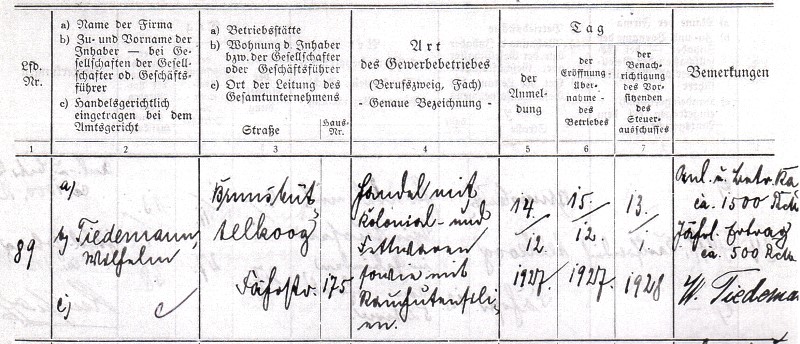 Lfd.
Nr.
a) Name der Firma
b) Zu- und Vorname der
Inhaber — bei Ge-
sellschaften der Gesell-
schafter od. Geschäfts-
führer
c) Handelsgerichtlich
eingetragen bei dem
Amtsgericht
a) Betriebsstätte
b) Wohnung d. Inhaber
bzw. der Gesellschafter
oder Geschäftsführer
c) Ort der Leitung des
Gesamtunternehmens
Straße
Haus-
Nr.
Art
des Gewerbebetriebes
(Berufszweig, Fach)
- Genaue Bezeichnung -
Tag
der
Anmel-
dung
der
Eröffnung-
Über-
nahme -
des
Betriebes
der
Benach-
richtigung
des Vor-
sitzenden
des
Steuer-
ausschusses
Bemerkungen
1 2 3 4 5 6 7
89
a)
b) Tiedemann,
Wilhelm
c)
Brunsbüt-
telkoog
Fährstr. 175
Handel mit
Kolonial- und
Fettwaren
sowie mit
Rauchutensili-
en.
14.
12.
1927.
15.
12.
1927.
13.
1.
1928
Anl. u. Betr. Ka
ca. 1500 Rm
Jährl. Ertrag
ca. 500 Rm
W. Tiedema